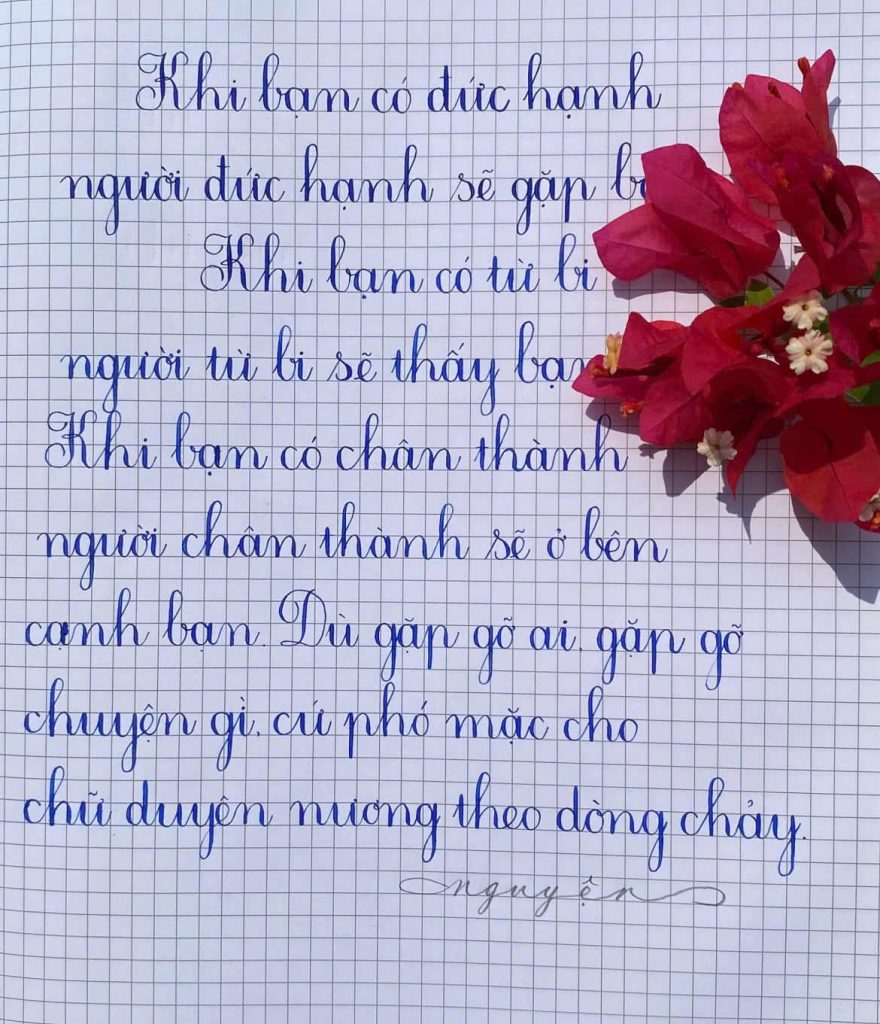 Khi bạn có đức hạnh
người đức hạnh sẽ gặp
Khi bạn có từ bi
người từ bi sẽ thấy bạn
Khi bạn có chân thành
người chân thành sẽ ở bên
cạnh bạn. Dù gặp gỡ ai, gặp gỡ
chuyện gì, cứ phó mặc cho
chữ duyên nương theo dòng chảy.
nguyện